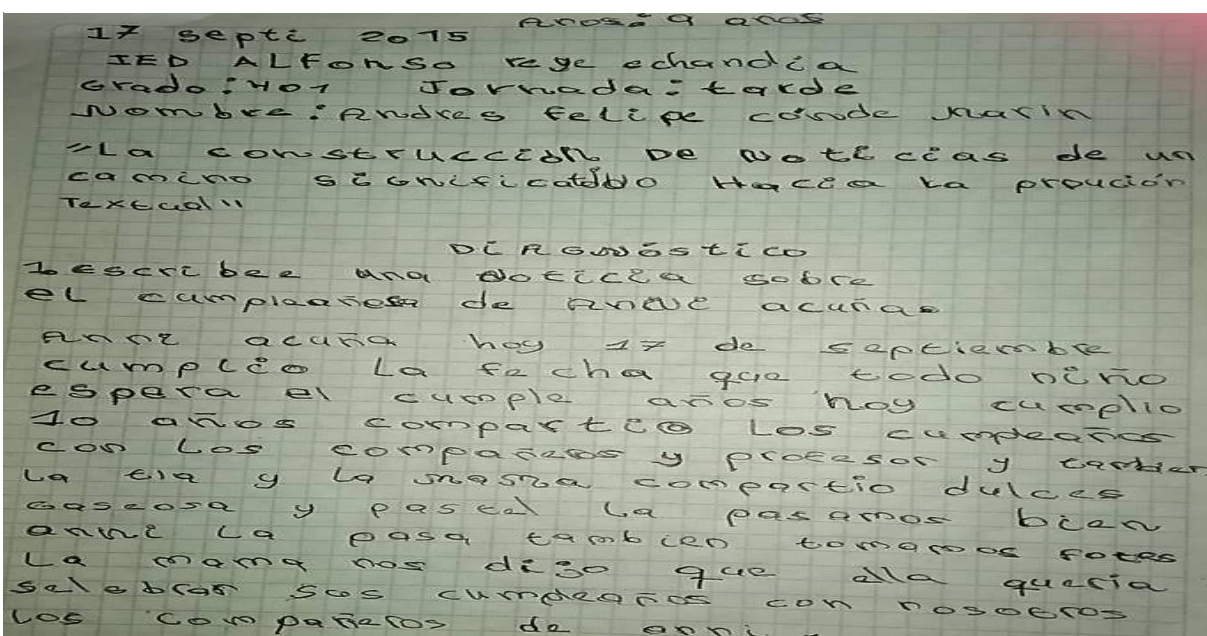 años: 9 años
17 septi 2015
IED ALFonso reye echandia
Grado: 401 Jornada: tarde
Nombre: Andres felipe conde Marin
"La construcción De Noticias de un
camino significativo Hacia La proución
Textual"
DiAGNóstico
1 escribee una Noticia sobre
eL cumpleaños de acuñas
anni acuña hoy 17 de septiembre
cumplio La fecha que todo niño
espera el cumple años hoy cumplio
10 años compartio Los cumpleaños
con Los compañeros y profesor y tambien
La tia y La mama compartio dulces
gaseosa y pastel La pasamos bien
anni La pasa tambien tomamos fotos
La mama nos dijo que ella queria
selebrar sus cumpleaños con nosotros
Los compañeros de anni